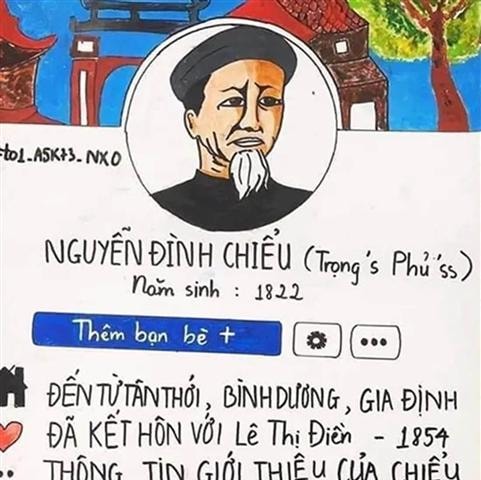 to1_A5K43_NXO
NGUYỄN ĐÌNH CHIỂU (Trọng's Phủ'ss)
Năm sinh : 1822
Thêm bạn bè +
ĐẾN TỪ TÂN THỚI, BÌNH DƯƠNG, GIA ĐỊNH
ĐÃ KẾT HÔN VỚI Lê Thị Điền - 1854
THÔNG TIN GIỚI THIỆU CỦA CHIỂU